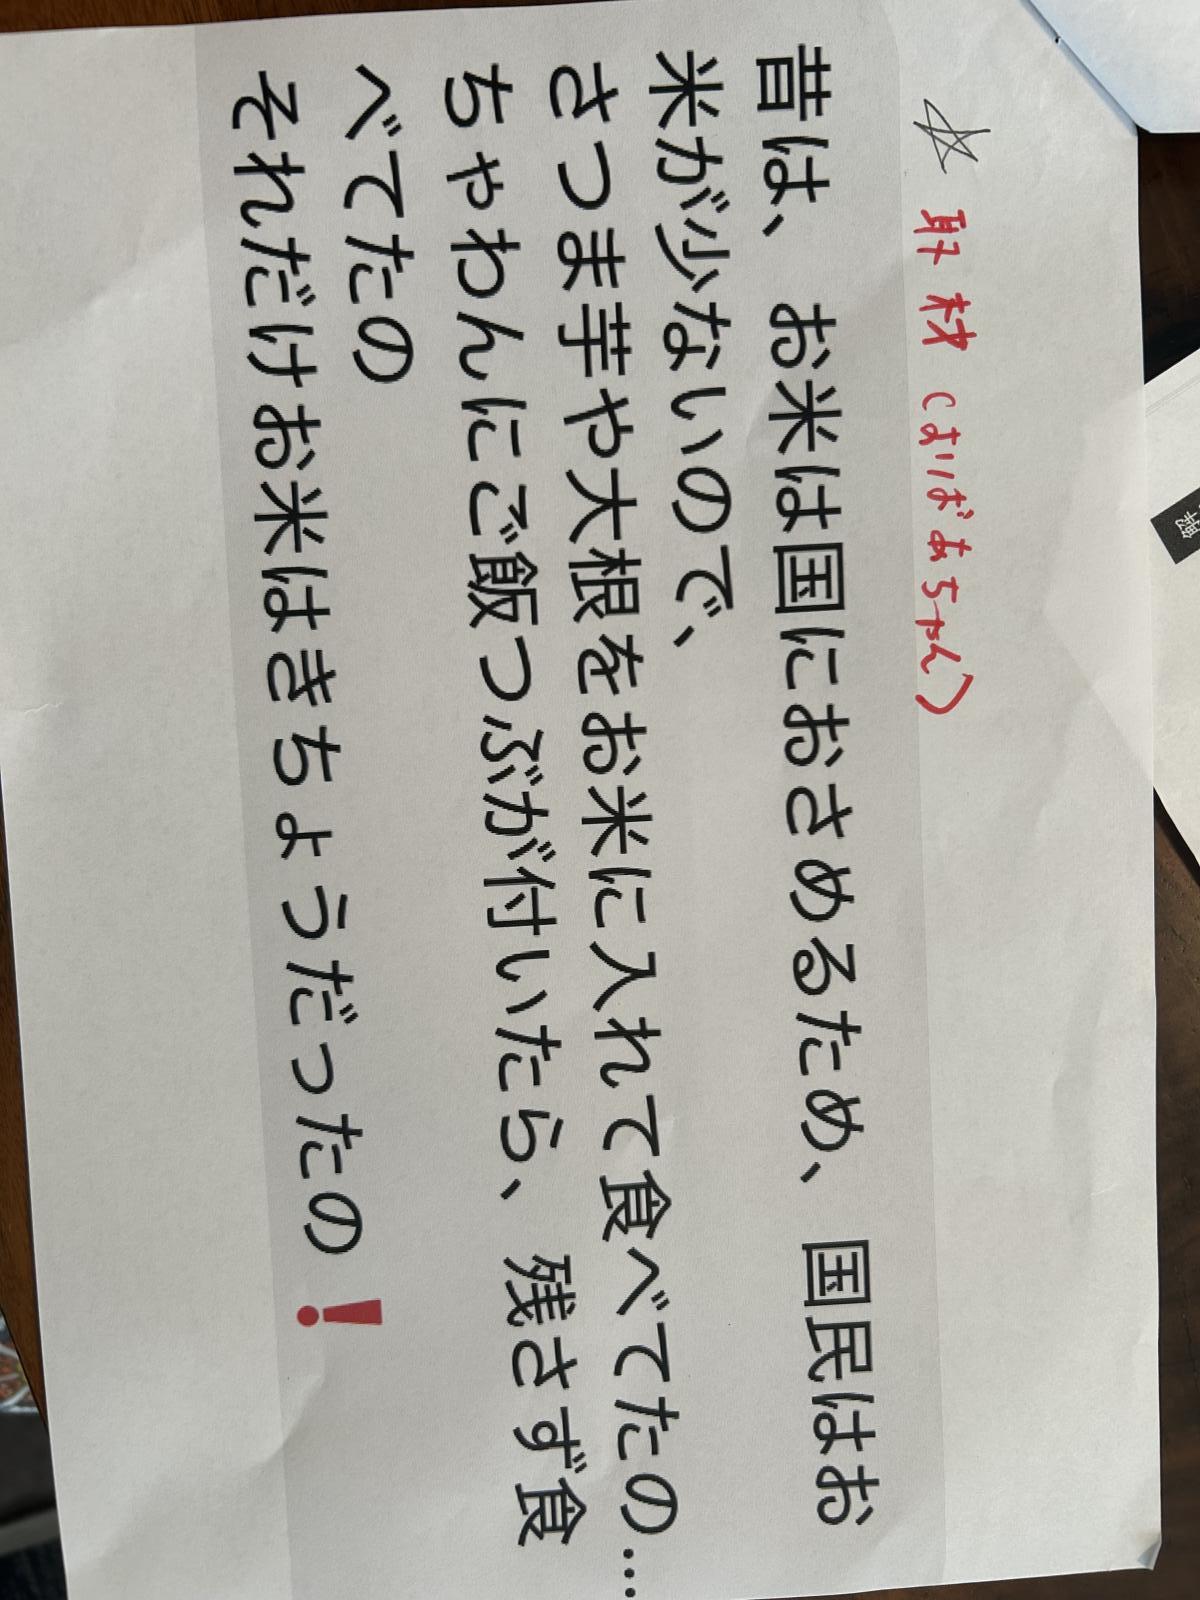 ☆ 取材(はりばあちゃん)
昔は、お米は国におさめるため、国民はお
米が少ないので、
さつま芋や大根をお米に入れて食べてたの…
ちゃわんにご飯つぶが付いたら、残さず食
べてたの
それだけお米はきちょうだったの❗